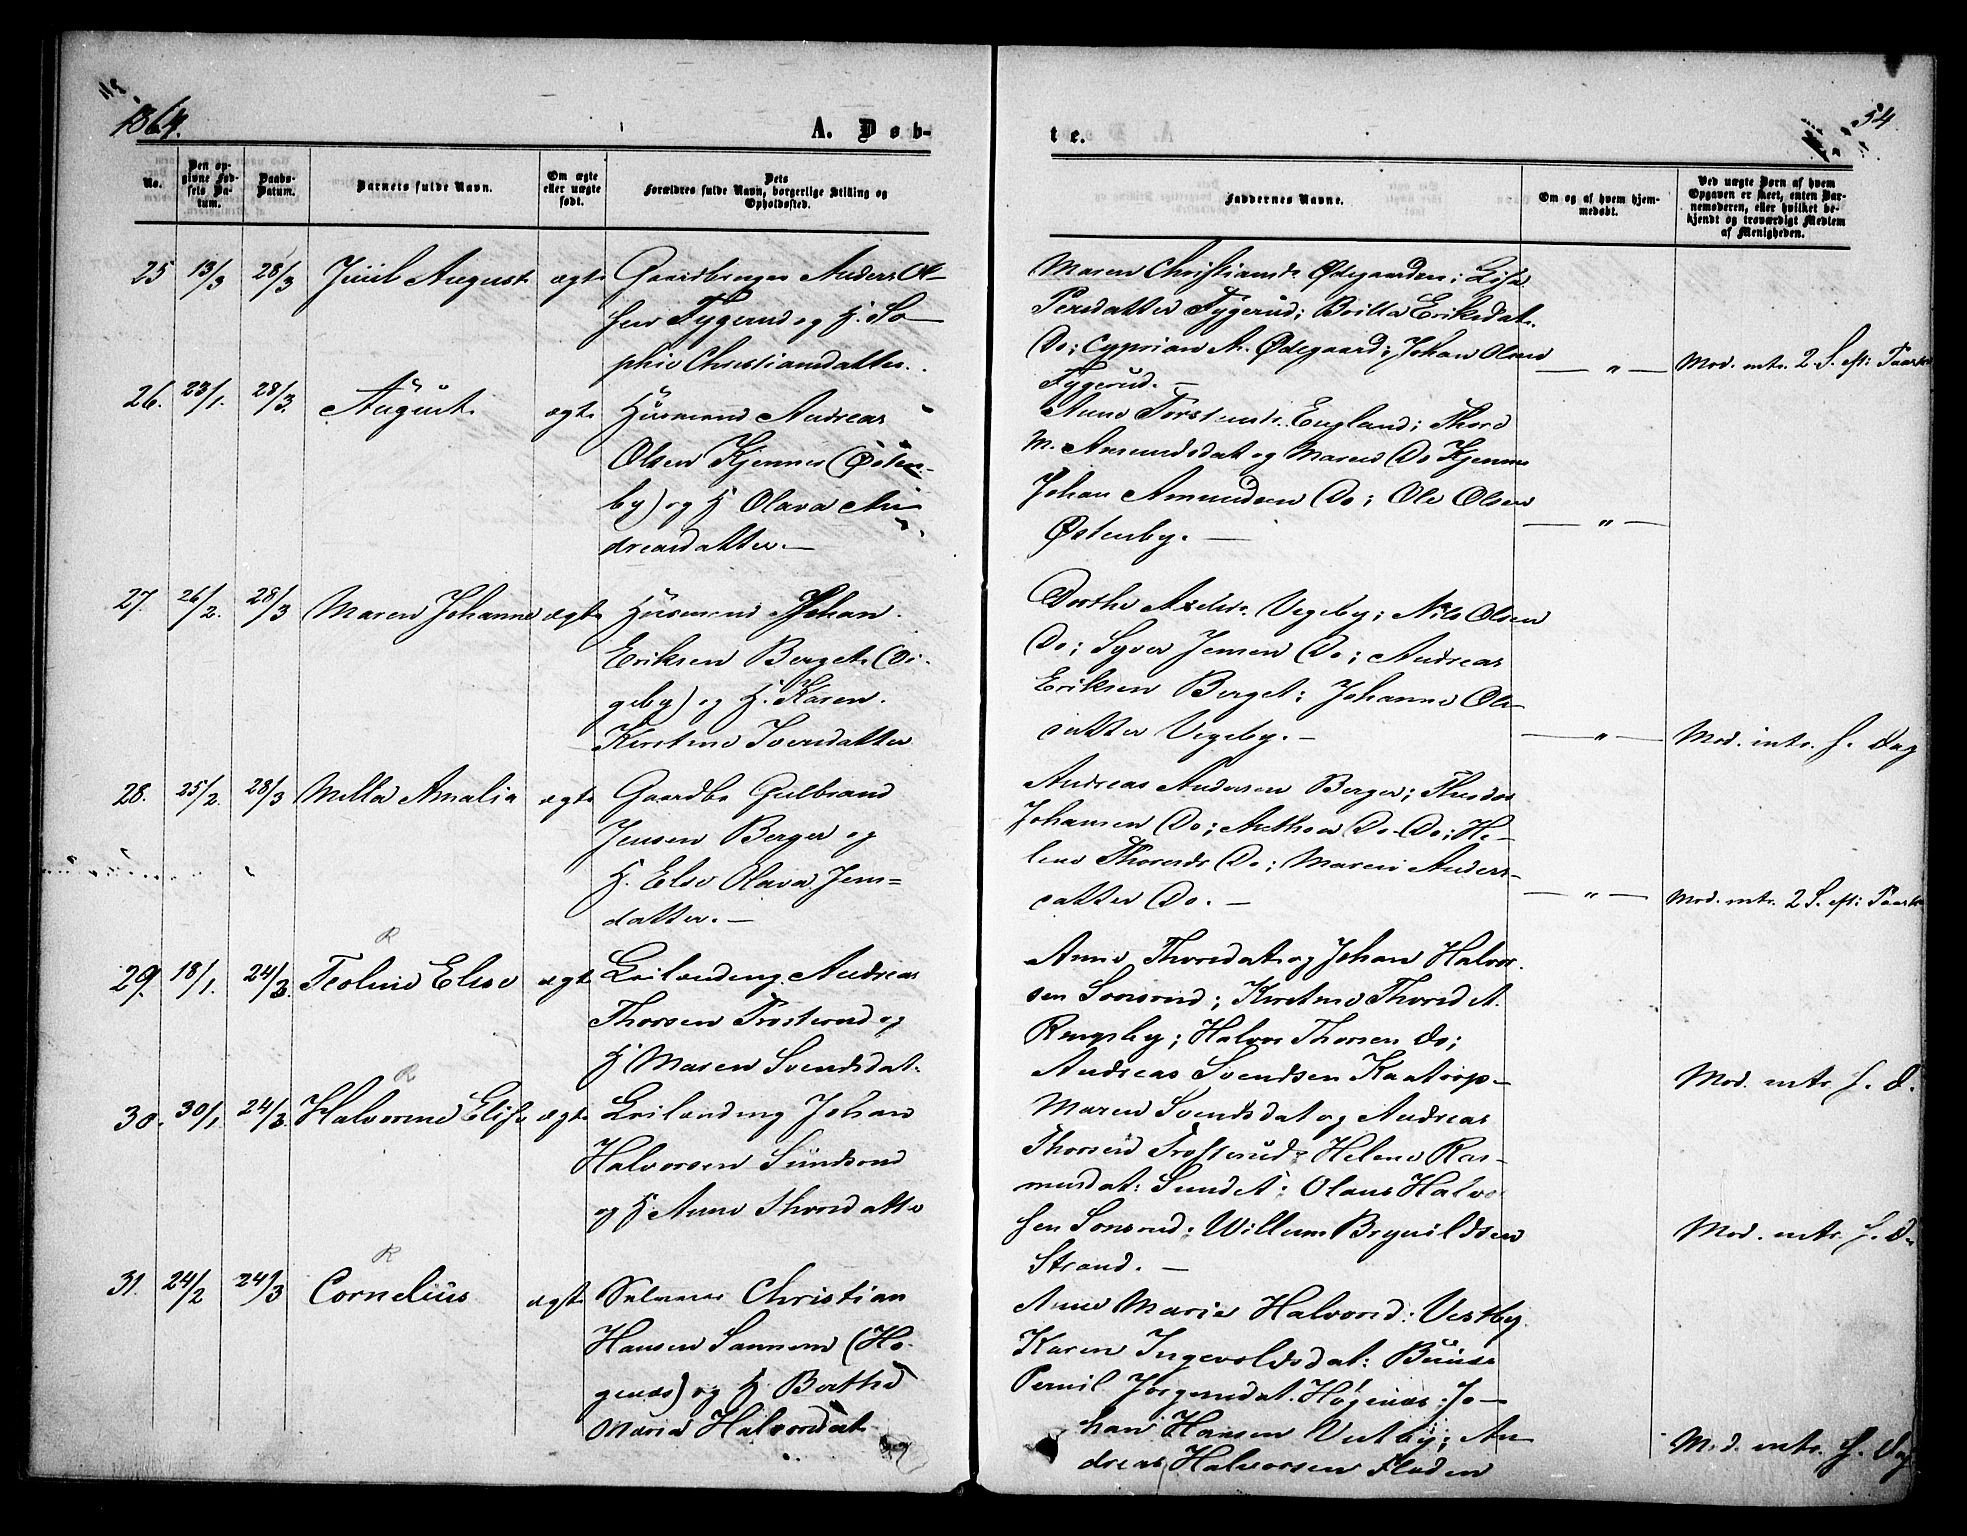 1864.
54.
A. Døb-
te.
No.
Den opgivne Fødsels Datum.
Daabs-Datum.
Barnets fulde Navn.
Om ægte eller uægte født.
Dets Forældres fulde Navn, borgerlige Stilling og Opholdssted.
Faddernes Navne.
Om og af hvem hjemmedøbt.
Ved uægte Børn af hvem Opgaven er skeet, enten Barnemoderen, eller hvilket bekjendt og troværdigt Medlem af Menigheden.
25 13/3 28/3 Juul August ægte Gaardbruger Anders Ol-
sen Tygerud og H. So-
phie Christiansdatter.
Maren Christiansdr Ødegaarden; Lise
Persdatter Tygerud; Britta Eriksdat.
Do; Cyprian A. Ødegaard; Johan Olsen
Tygerud. —
— " — Mod. intr. 2 S. eft: Paaske
26. 23/1. 28/3. August ægte Husmand Andreas
Olsen Kjennes (Østen-
by) og H Olava An-
dreasdatter. —
Anne Torstensdr. England; Thore
M. Amundsdat og Maren Do Kjennes
Johan Amundsen Do; Ole Olsen
Østenby. —
— " —
27. 26/2. 28/3 Maren Johanne ægte Husmand Johan
Eriksen Berget (Vi-
geby) og H. Karen
Kirstine Iversdatter
Dorthe Axelsdr. Vegeby; Nils Olsen
Do; Syver Jensen Do; Andreas
Eriksen Berget; Johanne Ols-
datter Vegeby. —
— " — Mod. intr. s. Dag
28. 25/2. 28/3 Milla Amalia ægte Gaardbr Gulbrand
Jensen Berger og
H. Else Olava Jens=
datter. —
Andreas Andersen Berger; Theodor
Johansen Do; Anthon Do Do; He-
lene Thoresdr Do; Maren Anders-
datter Do. —
— " — Mod. intr. 2 S. eft: Paaske
R
29. 18/1. 24/3. Teoline Elise ægte Leilænding Andreas
Thorsen Trosterud og
H Maren Svendsdat.
Anne Thorsdat. og Johan Halvor-
sen Sonsrud; Kirstine Thorsdat.
Ringsby; Halvor Thorsen Do;
Andreas Svendsen Kaatorp-
Mod. intr. s. D.
R
30. 30/1. 24/3. Halvorine Elise ægte Leilænding Johan
Halvorsen Sundsrud
og H Anne Thorsdatter
Maren Svendsdat og Andreas
Thorsen Trosterud; Helene Ras-
musdat: Sundet; Olaus Halvor
sen Sonsrud; Willum Brynildsen
Strand. —
Mod. intr. s. D.
R
31. 24/2 24/3 Cornelius ægte Selveier Christian
Hansen Sannem (Hø-
genæs) og H Berthe
Maria Halvorsdat.
Anne Marie Halvorsd: Vestby
Karen Ingevoldsdat: Buuse
Pernil Jørgensdat. Høgenæs: Jo-
han Hansen Vestby; An-
dreas Halvorsen Floden
Mod. intr. s. Dag